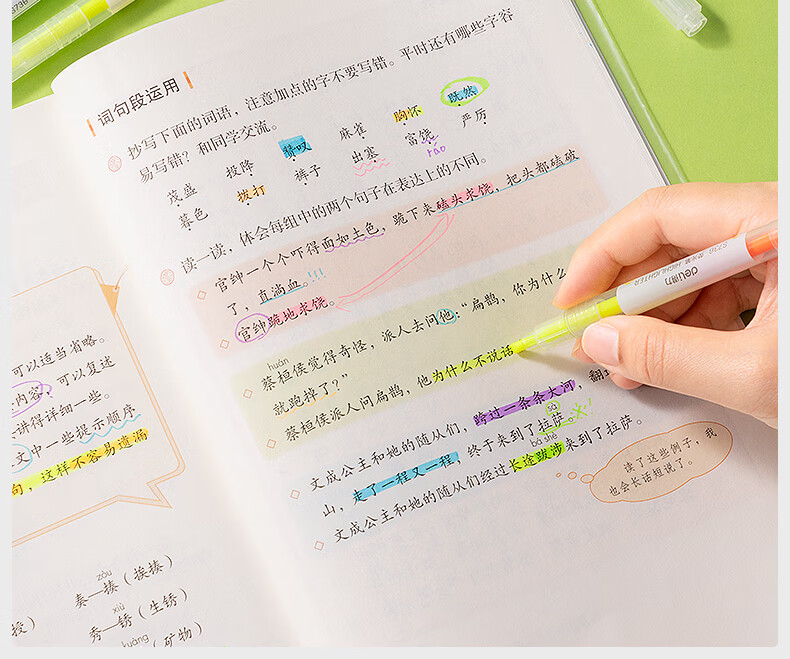 词句段运用
抄写下面的词语，注意加点的字不要写错。平时还有哪些字容
易写错？和同学交流。
茂盛 投降 赞叹 麻雀 胸怀 既然
暮色 拨打 裤子 出塞 富饶 严厉
rao
读一读，体会每组中的两个句子在表达上的不同。
官绅一个个吓得面如土色，跪下来磕头求饶，把头都磕破
了，直淌血。!!!
官绅跪地求饶。
huán
蔡桓侯觉得奇怪，派人去问他：“扁鹊，你为什么
就跑掉了？”
蔡桓侯派人问扁鹊，他为什么不说话
文成公主和她的随从们，跨过一条条大河，翻
sà
山，走了一程又一程，终于来到了拉萨。
bá shè
文成公主和她的随从们经过长途跋涉来到了拉萨。
读了这些例子，我
也会长话短说了。
可以适当省略。
内容，可以复述
讲得详细一些。
文中一些提示顺序
句，这样不容易遗漏
zòu
奏—揍（挨揍）
xiù
秀—锈（生锈）
kuàng
（矿物）
deli得力
HIGHLIGHTER